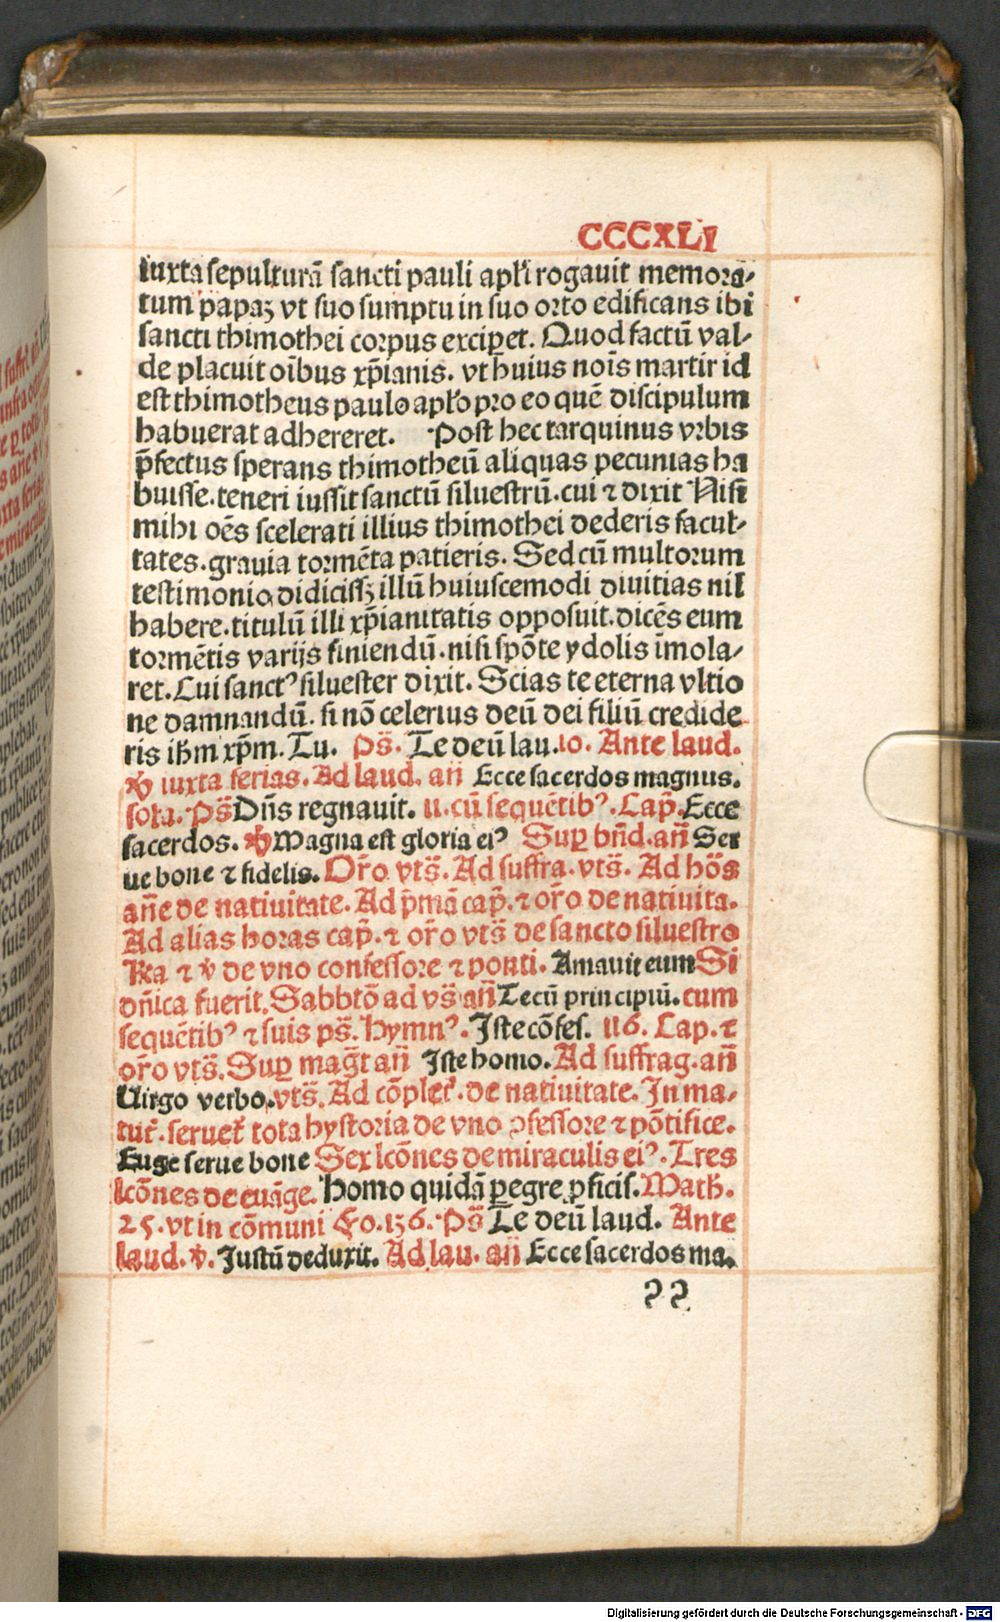 CCCXLI
iuxta sepulturā sancti pauli apl̄i rogauit memora⸗
tum papaꝫ vt suo sumptu in suo orto edificans ibi
sancti thimothei corpus exciꝑet. Quod factū val⸗
de placuit oībus xp̄ianis. vt huius noīs martir id
est thimotheus paulo apl̄o pro eo quē discipulum
habuerat adhereret. Post hec tarquinus vrbis
p̄fectus sperans thimotheū aliquas pecunias ha
buisse. teneri iussit sanctū siluestrū. cui ⁊ dixit Nisi
mihi oēs scelerati illius thimothei dederis facul⸗
tates. grauia tormēta patieris. Sed cū multorum
testimonio didicissꝫ illū huiuscemodi diuitias nil
habere. titulū illi xp̄ianitatis opposuit. dicēs eum
tormētis varijs finiendū. nisi spōte ydolis īmola⸗
ret. Cui sanctꝰ siluester dixit. Scias te eterna vltio
ne damnandū. si nō celerius deū dei filiū credide
ris ih̄m xp̄m. Tu. Ps̄. Te deū lau. 10. Ante laud.
℣ iuxta ferias. Ad laud. an̄ Ecce sacerdos magnus.
sola. Ps̄ Dn̄s regnauit. 11. cū sequētibꝰ. Cap̄. Ecce
sacerdos. ℟ Magna est gloria eiꝰ Suꝑ bn̄d. an̄ Ser
ue bone ⁊ fidelis. Or̄o vts̄. Ad suffra. vts̄. Ad hōs
an̄e de natiuitate. Ad p̄mā cap̄. ⁊ or̄o de natiuita.
Ad alias horas cap̄. ⁊ or̄o vts̄ de sancto siluestro
℟ia ⁊ ℣ de vno confessore ⁊ ponti. Amauit eum Si
dn̄ica fuerit. Sabbtō ad vs̄ an̄ Tecū principiū. cum
sequētibꝰ ⁊ suis ps̄. Hymnꝰ. Iste cōfes. 116. Cap. ⁊
or̄o vts̄. Suꝑ mag̅t an̄ Iste homo. Ad suffrag. an̄
Uirgo verbo. vts̄. Ad cōplet̄. de natiuitate. In ma⸗
tut̄. seruet̄ tota hystoria de vno ꝯfessore ⁊ pōtifice.
Euge serue bone Sex lc̄ōnes de miraculis eiꝰ. Tres
lc̄ōnes de euāge. Homo quidā ꝑegre ꝓficis. Math.
25. vt in cōmuni Fo. 156. Ps̄ Te deū laud. Ante
laud. ℣. Justū deduxit. Ad lau. an̄ Ecce sacerdos ma.
Digitalisierung gefördert durch die Deutsche Forschungsgemeinschaft - DFG